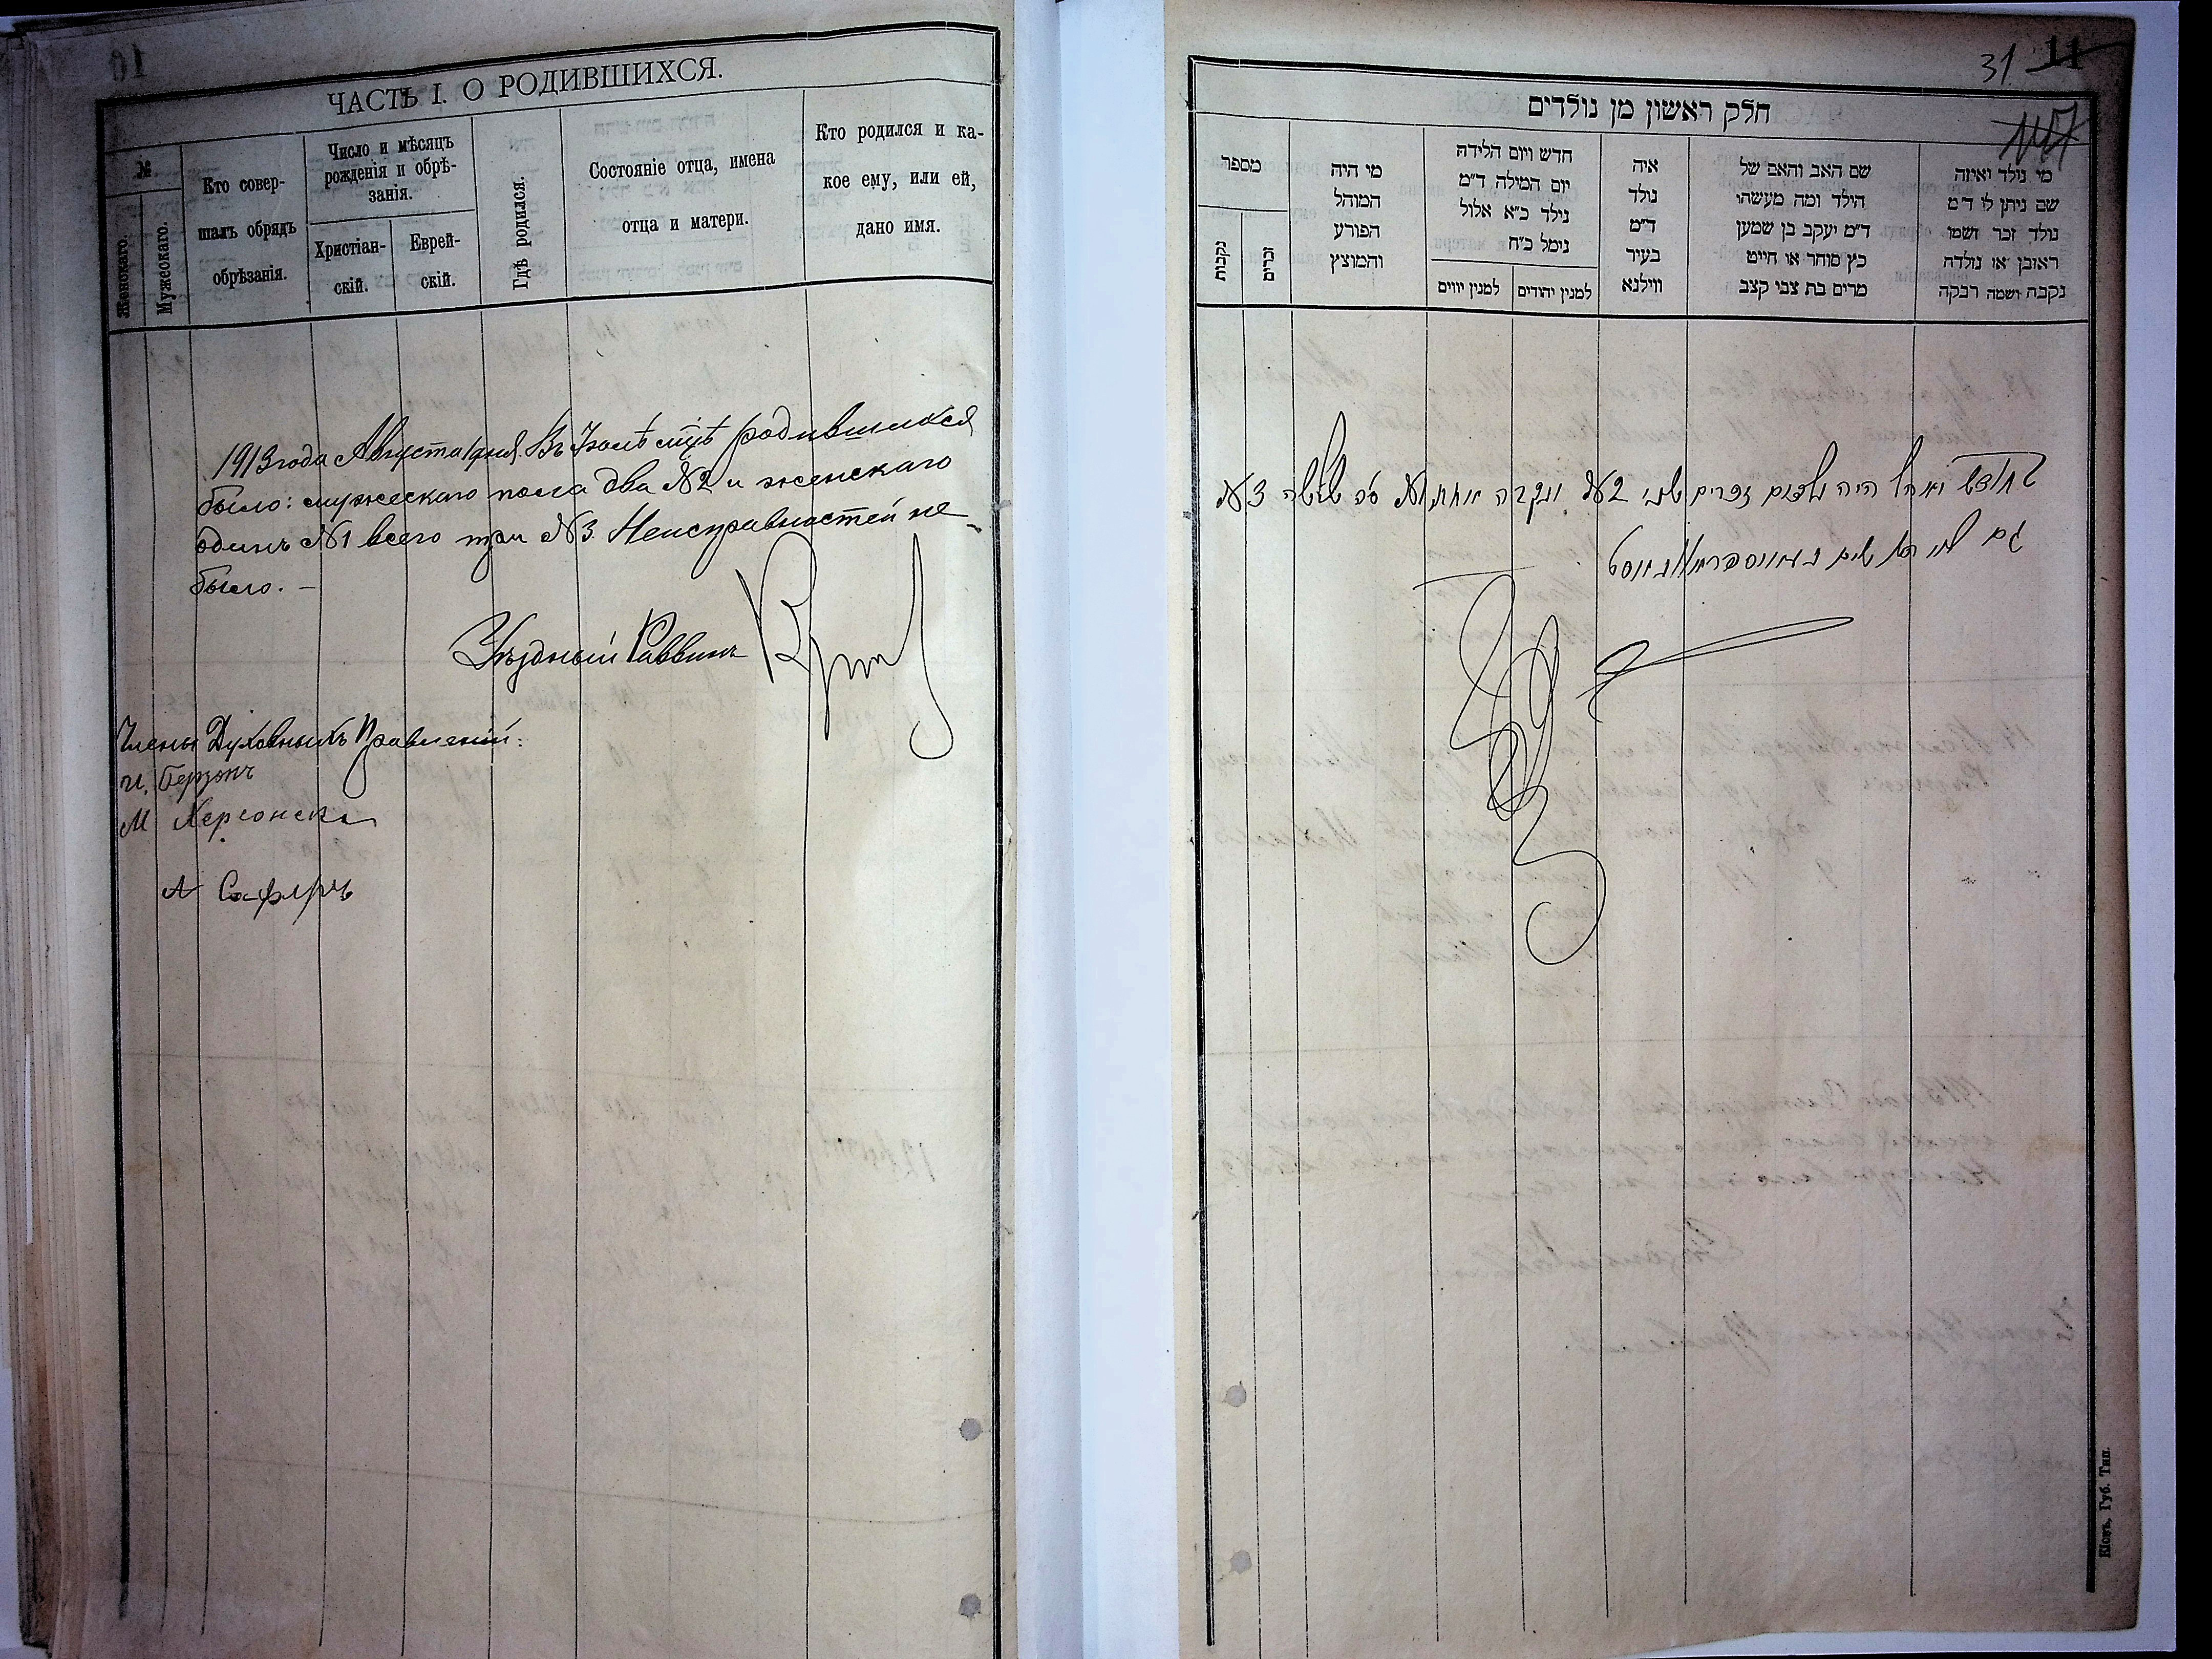 ЧАСТЬ I. О РОДИВШИХСЯ.
№
Женскаго.
Мужескаго.
Кто совер-
шалъ обрядъ
обрѣзанія.
Число и мѣсяцъ
рожденія и обрѣ-
занія.
Христіан-
скій.
Еврей-
скій.
Гдѣ родился.
Состояніе отца, имена
отца и матери.
Кто родился и ка-
кое ему, или ей,
дано имя.
1913 года Августа 1 дня. Въ Іюлѣ мцѣ родившихся
было: мужескаго пола два №2 и женскаго
одинъ №1 всего три №3. Неисправностей не
было. —
Уѣздный Раввинъ
Члены Духовныхъ Правленій:
И. Берзонъ
М Херсонскі
А
31 11
חלק ראשון מן נולדים
מספר
נקבות
זכרים
מי היה
המוהל
הפורע
והמוצץ
חדש ויום הלידה
יום המילה ד״מ
נילד כ״א אלול
נימל כ״ח
למנין יווים
למנין יהודים
איה
נולד
ד״מ
בעיר
ווילנא
שם האב והאם של
הילד ומה מעשהו
ד״מ יעקב בן שמעון
כץ סוחר או חייט
מרים בת צבי קצב
מי נולד ואיזה
שם ניתן לו ד״מ
נולד זכר ושמו
ראובן או נולדה
נקבה ושמה רבקה
היה נולדים זכרים שני №2 ונקבה אחת №1 סה שלשה №3
גם
Кіевъ, Губ. Тип.